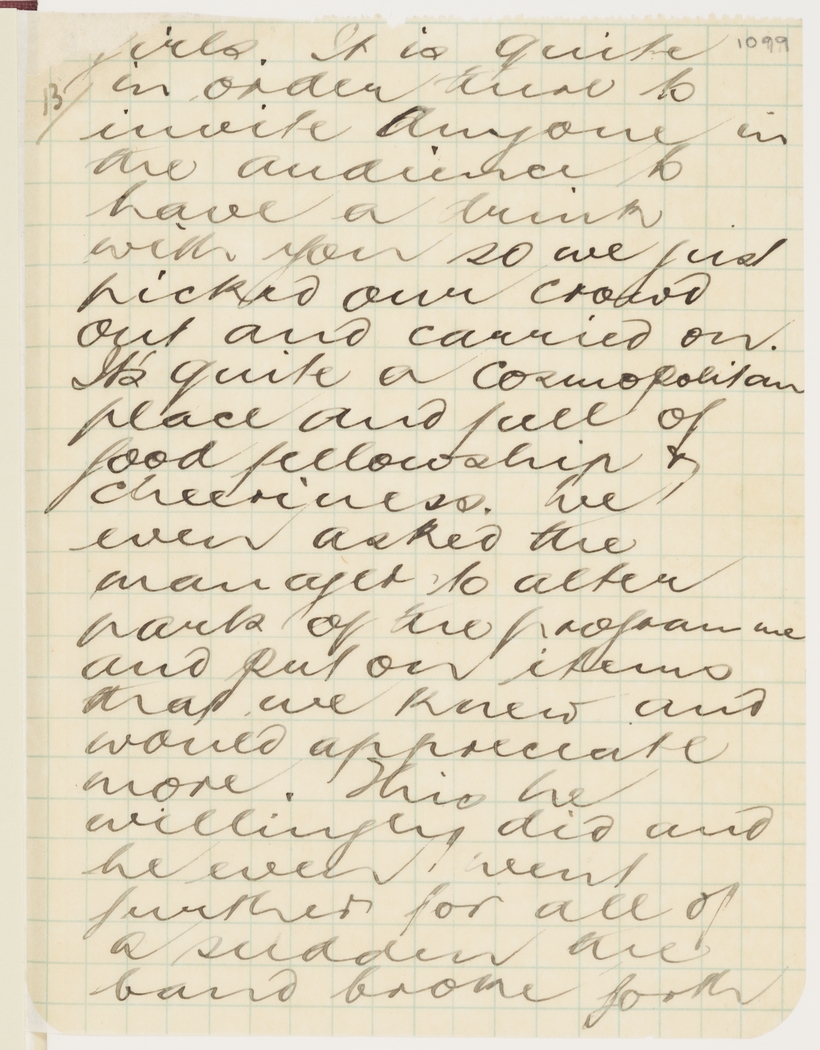 1099
girls. It is quite
13/ in order there to
invite Anyone in
the audience to
have a drink
with you so we just
picked our crowd
out and carried on.
It's quite a Cosmopolitan
place and full of
good fellowship &
cheeriness. We
even asked the
manager to alter
part of the programme
and put on items
that we knew and
would appreciate
more. This he
willingly did and
he even went
further for all of
a sudden the
band broke forth